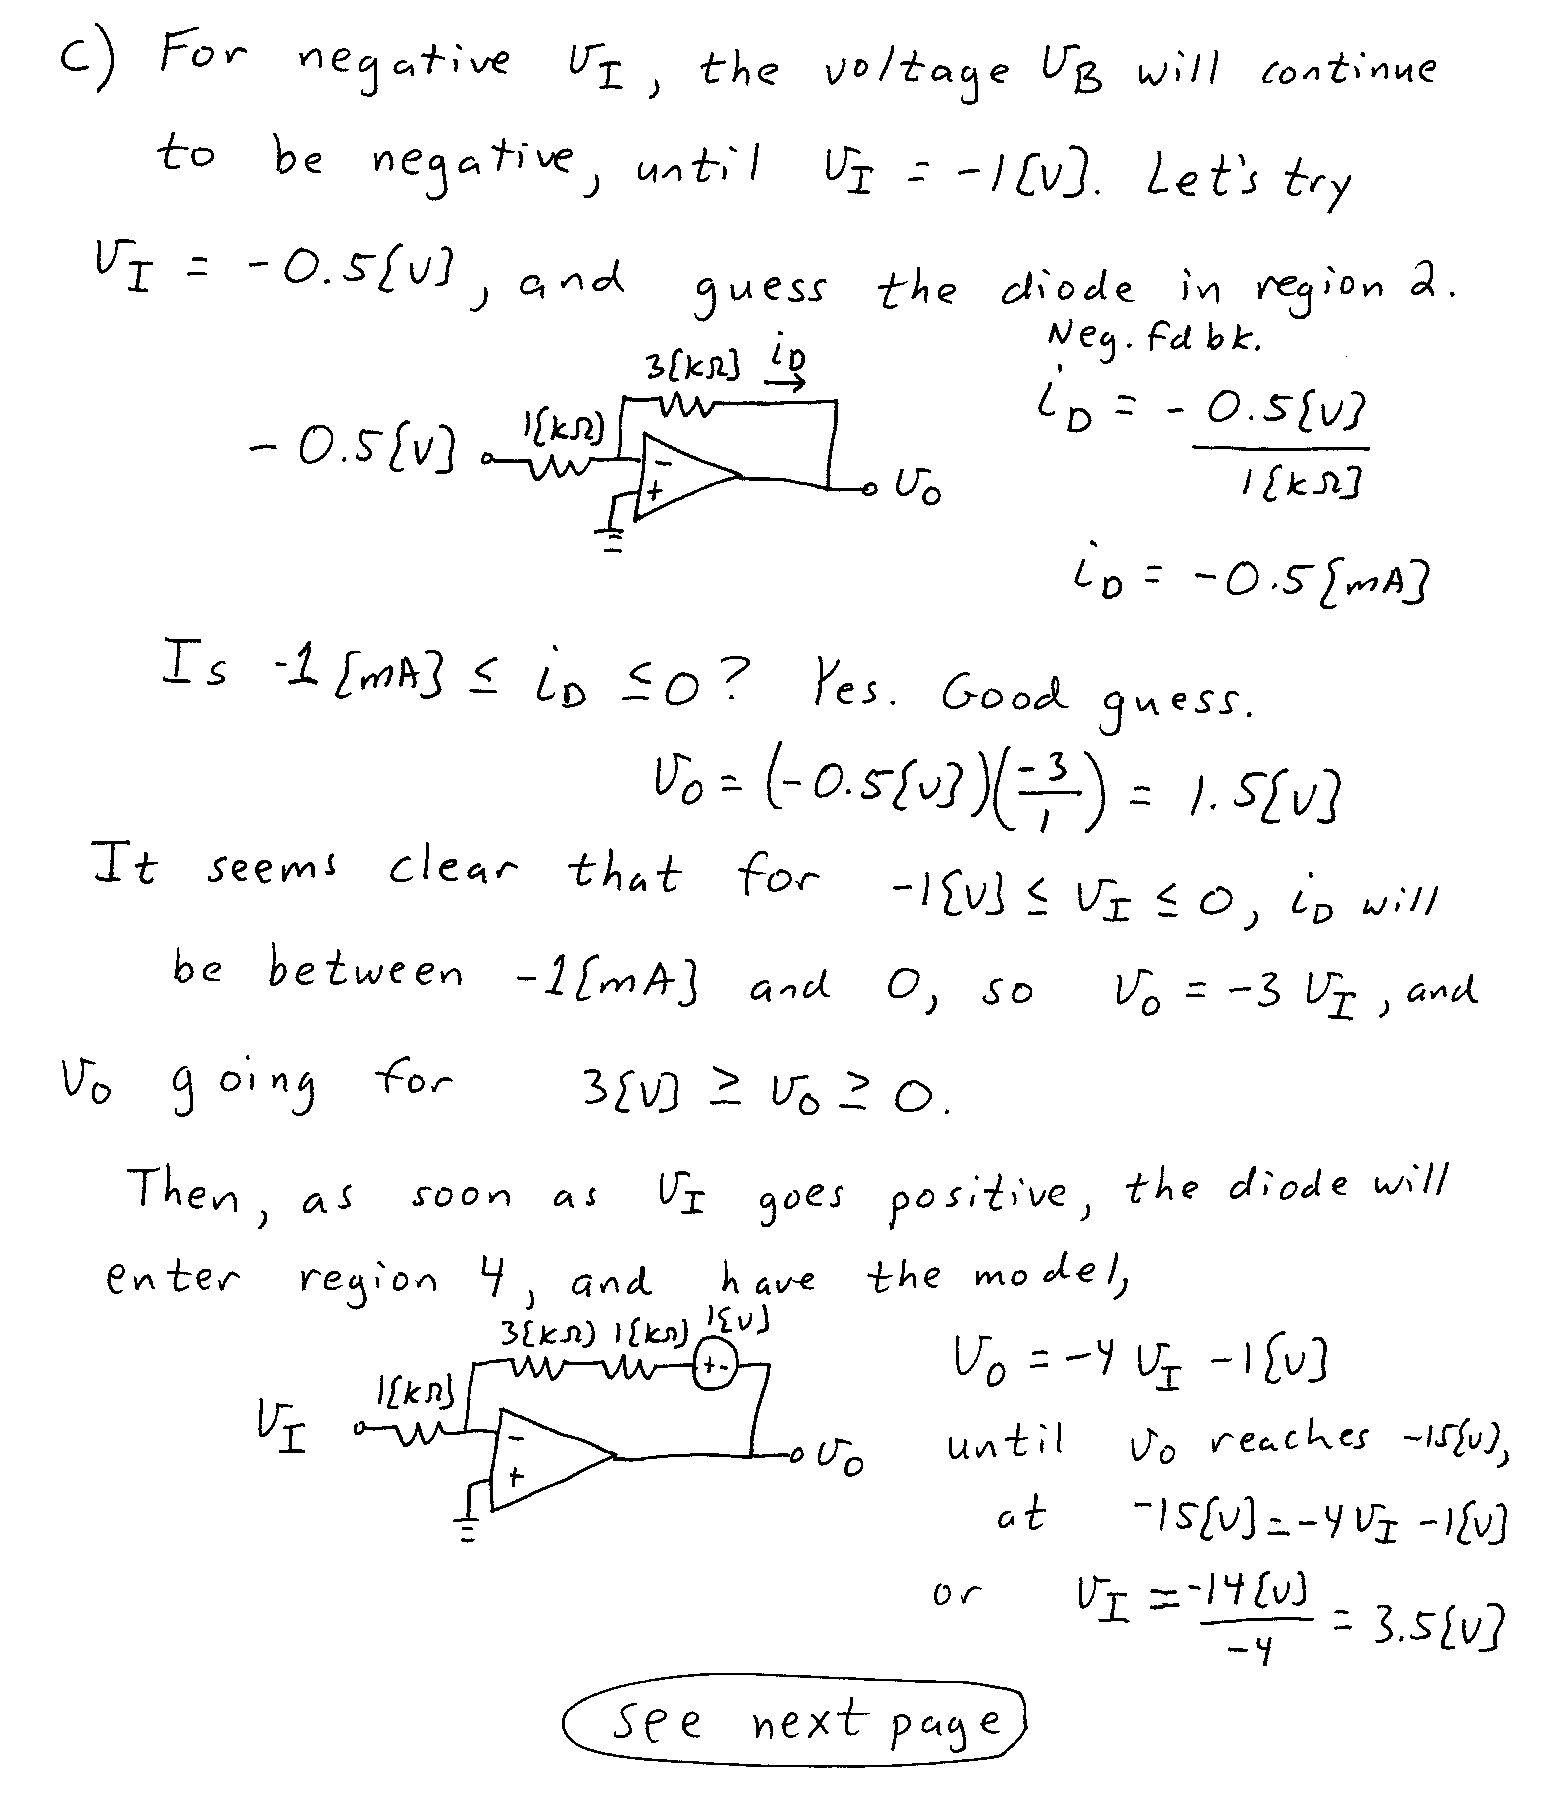 c) For negative v_I, the voltage v_B will continue
to be negative, until v_I = -1[V]. Let's try
v_I = -0.5[V], and guess the diode in region 2.
Neg. fdbk.
3[kΩ] i_D
i_D = -0.5[V]
-0.5[V] 1[kΩ]
- + v_O
1[kΩ]
i_D = -0.5[mA]
Is -1[mA] ≤ i_D ≤ 0? Yes. Good guess.
v_O = (-0.5[V])(-3/1) = 1.5[V]
It seems clear that for -1[V] ≤ v_I ≤ 0, i_D will
be between -1[mA] and 0, so v_O = -3 v_I, and
v_O going for 3[V] ≥ v_O ≥ 0.
Then, as soon as v_I goes positive, the diode will
enter region 4, and have the model,
3[kΩ] 1[kΩ] 1[V]
+ -
v_O = -4 v_I - 1[V]
v_I 1[kΩ]
- + v_O
until v_O reaches -15[V],
at -15[V] = -4 v_I - 1[V]
or v_I = -14[V]/-4 = 3.5[V]
see next page